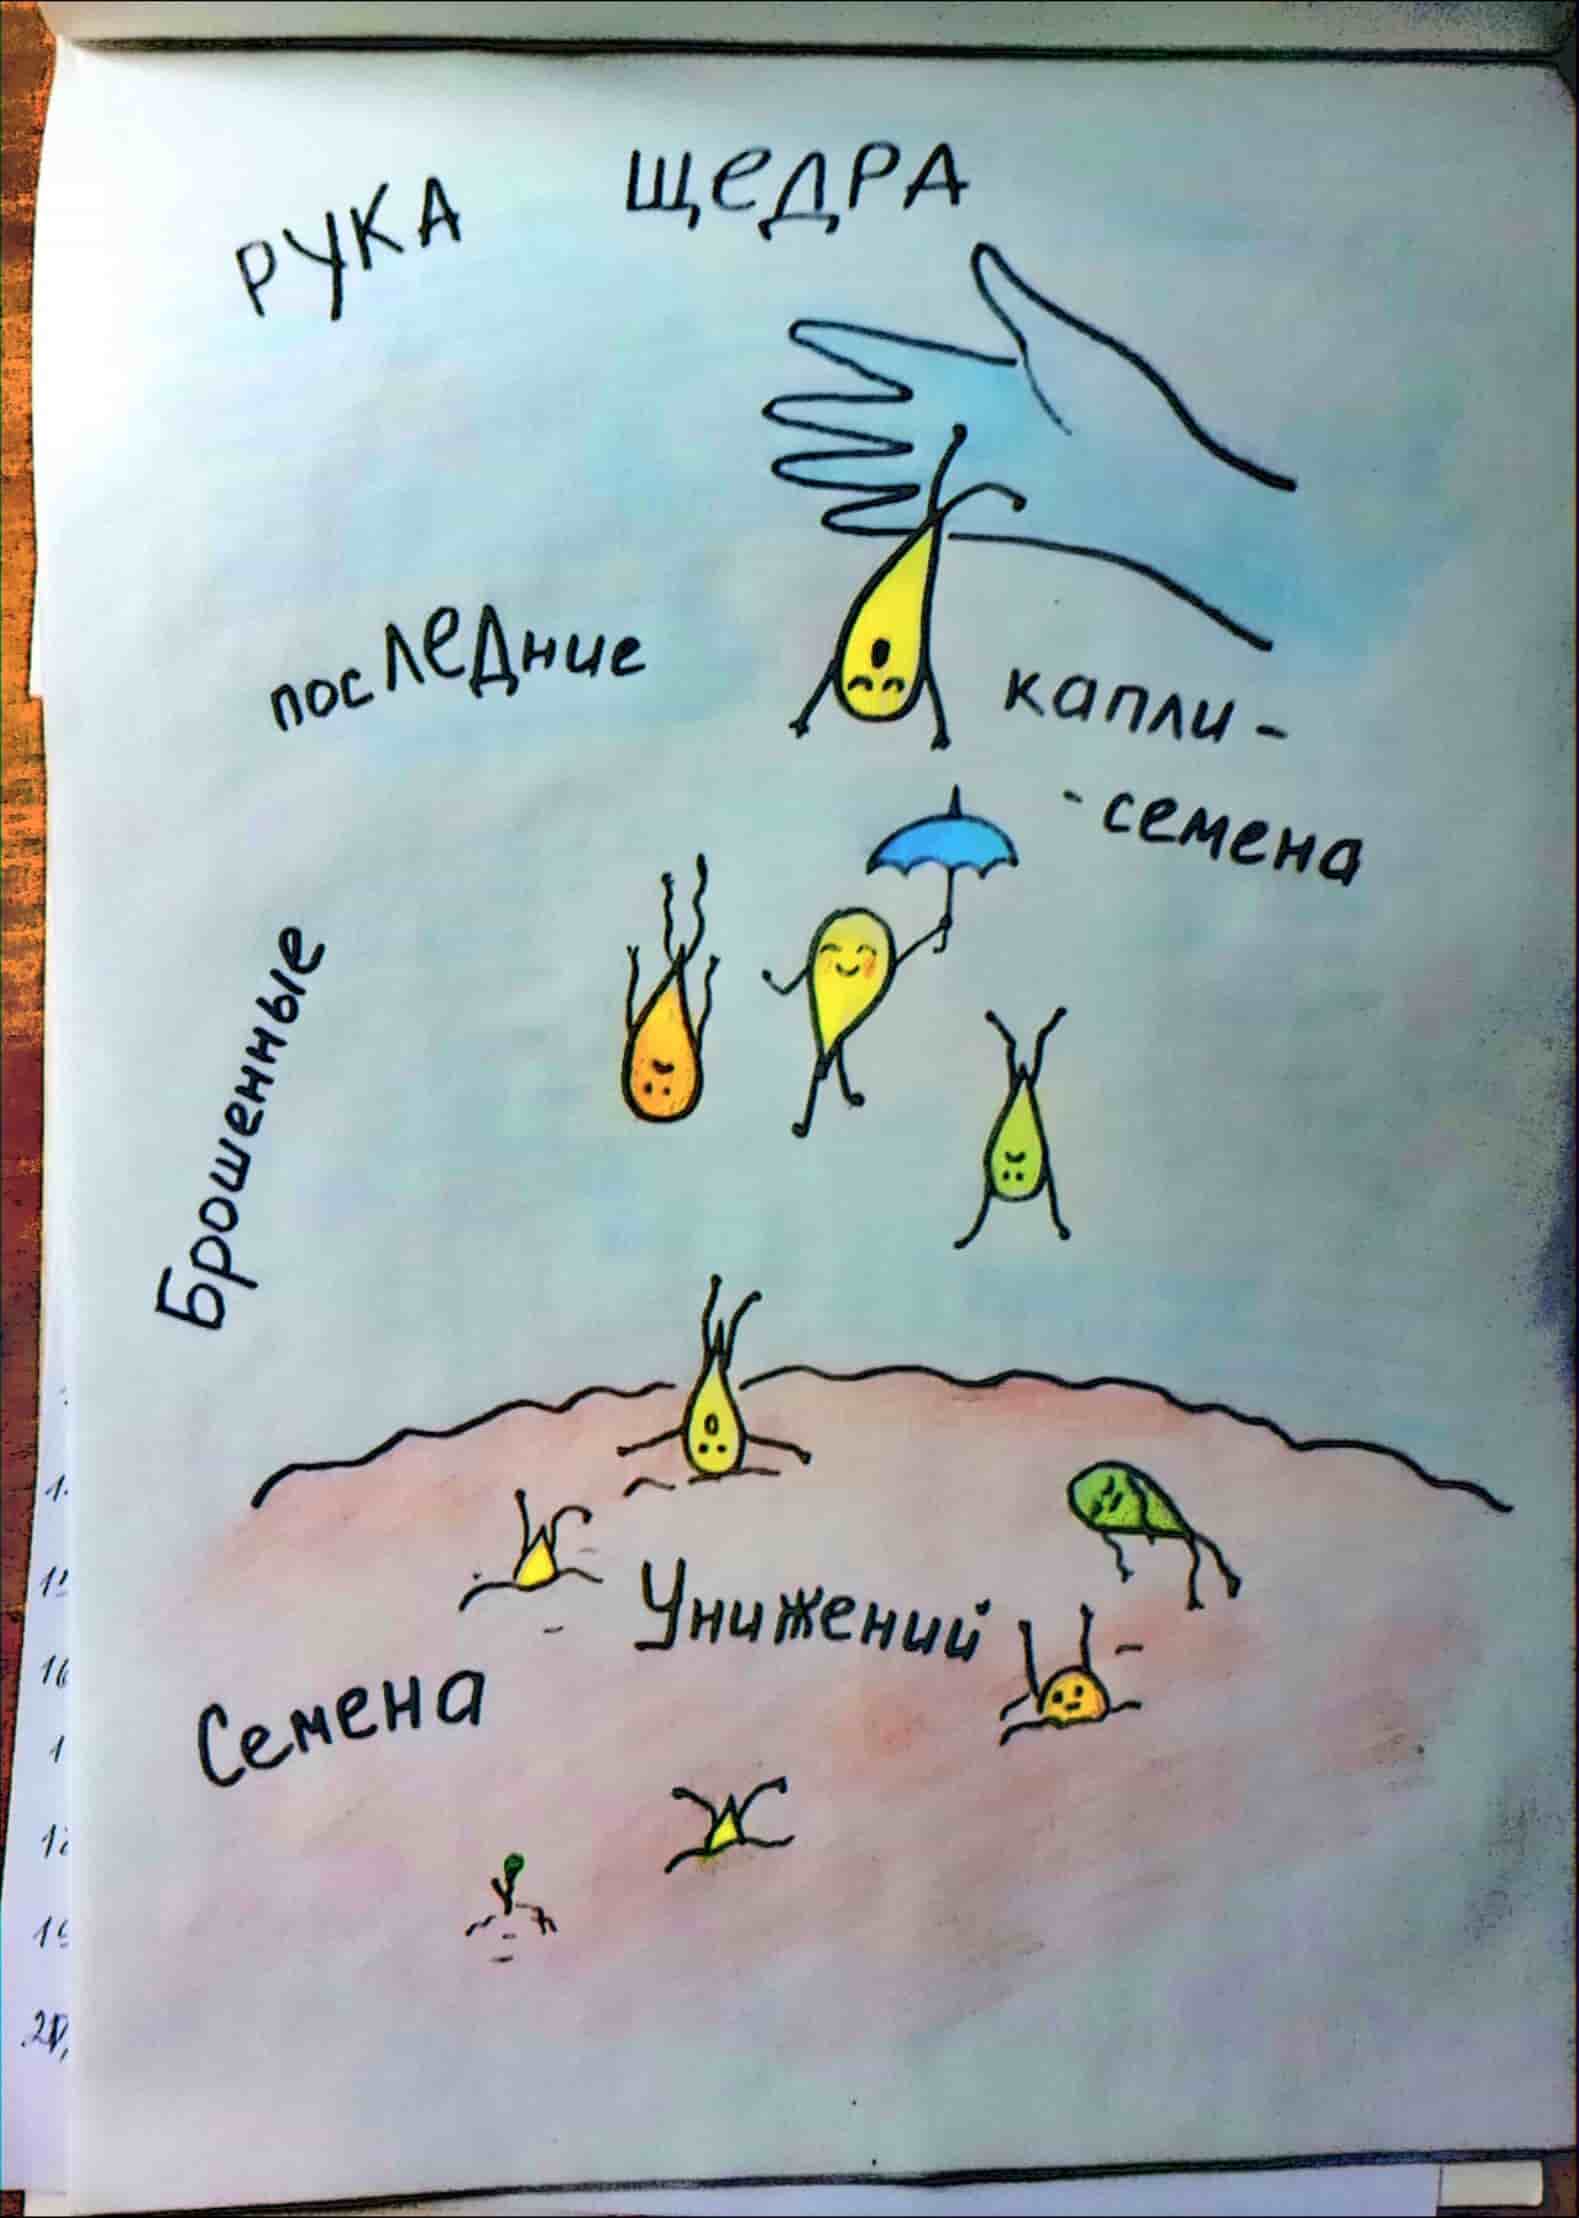 РУКА ЩЕДРА
последние капли -
- семена
Брошенные
Унижений
Семена